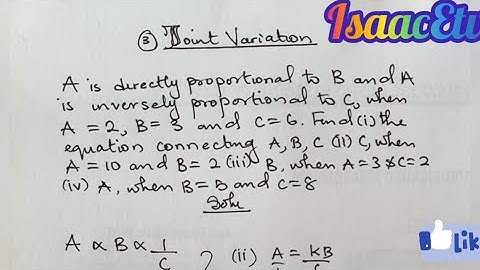 IsaacEtv
③ Joint Variation
A is directly proportional to B and A
is inversely proportional to C, when
A = 2, B = 3 and C = 6. Find (i) the
equation connecting A, B, C (ii) C, when
A = 10 and B = 2 (iii) B, when A = 3 & C = 2
(iv) A, when B = B and C = 8
Soln
A ∝ B ∝ 1/C
(ii) A = kB
Lik